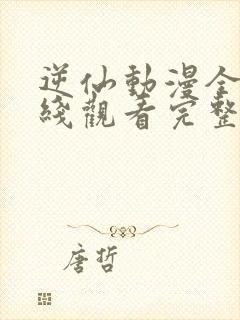 逆仙動漫全
綫觀看完整
唐哲